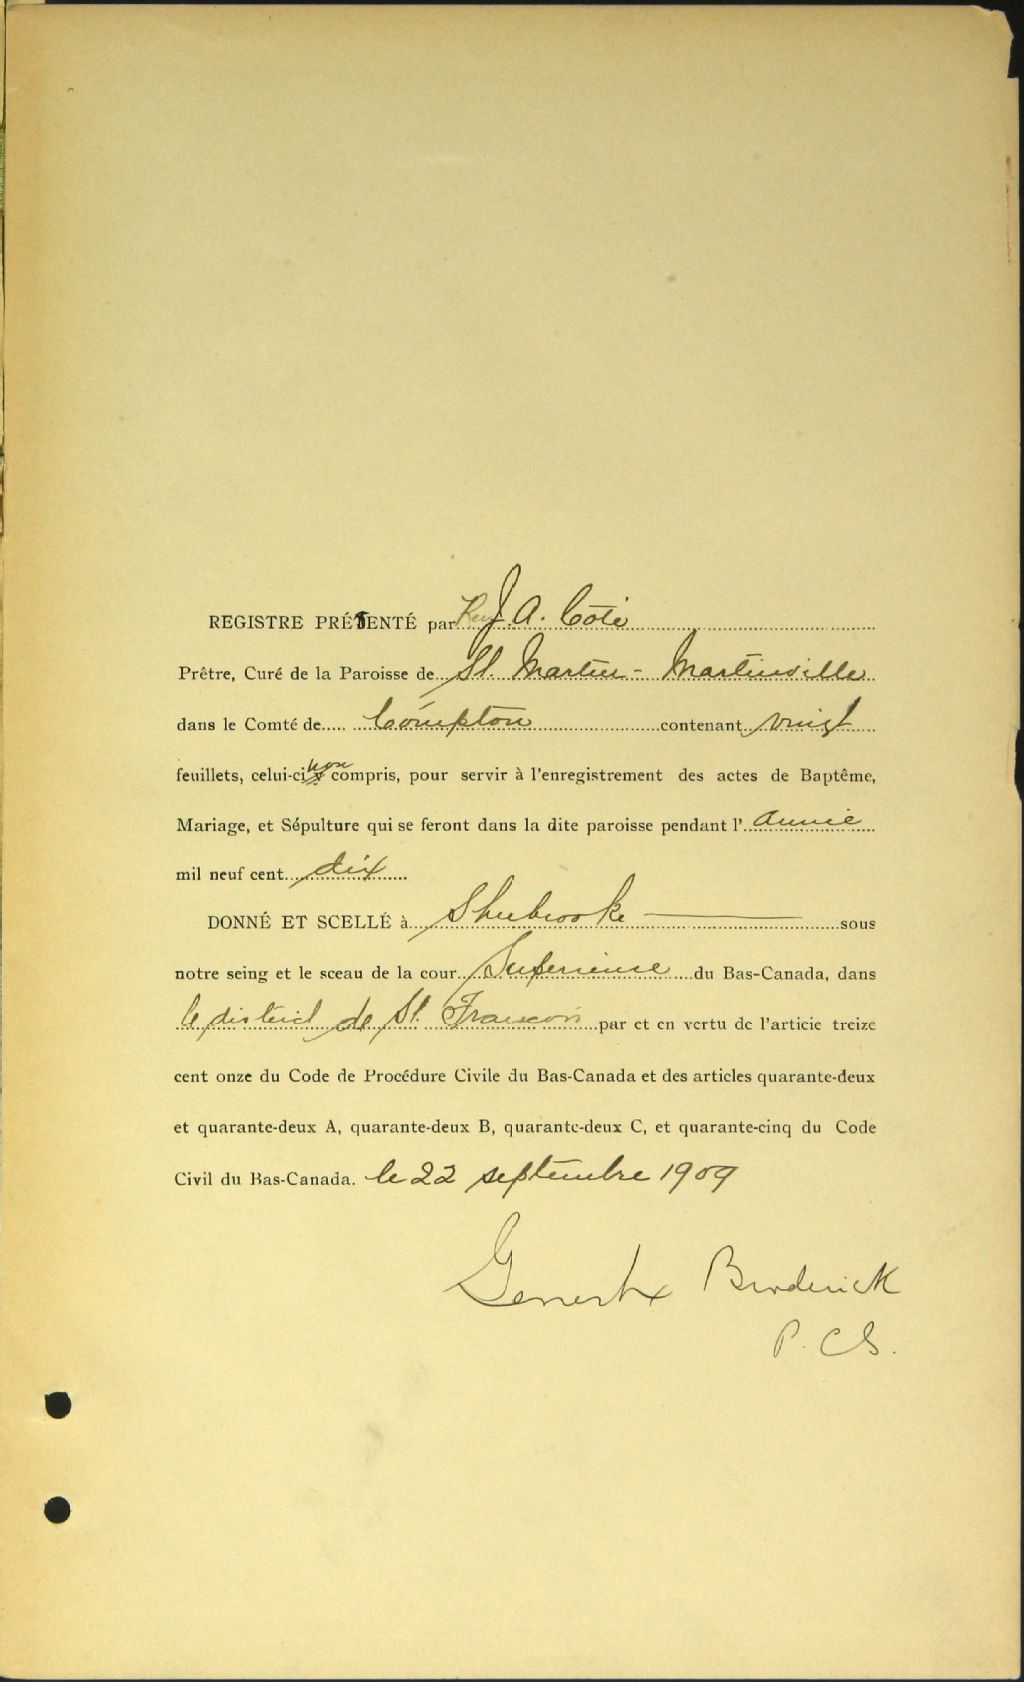 REGISTRE PRÉSENTÉ par Rev J. A. Coté
Prêtre, Curé de la Paroisse de St. Martin - Martinville
dans le Comté de Compton contenant vingt
feuillets, celui-ci non compris, pour servir à l'enregistrement des actes de Baptême,
Mariage, et Sépulture qui se feront dans la dite paroisse pendant l'année
mil neuf cent dix
DONNÉ ET SCELLÉ à Sherbrooke sous
notre seing et le sceau de la cour Superieure du Bas-Canada, dans
le district de St. Francois par et en vertu de l'article treize
cent onze du Code de Procédure Civile du Bas-Canada et des articles quarante-deux
et quarante-deux A, quarante-deux B, quarante-deux C, et quarante-cinq du Code
Civil du Bas-Canada. le 22 septembre 1909
Genest & Broderick
P. C S.